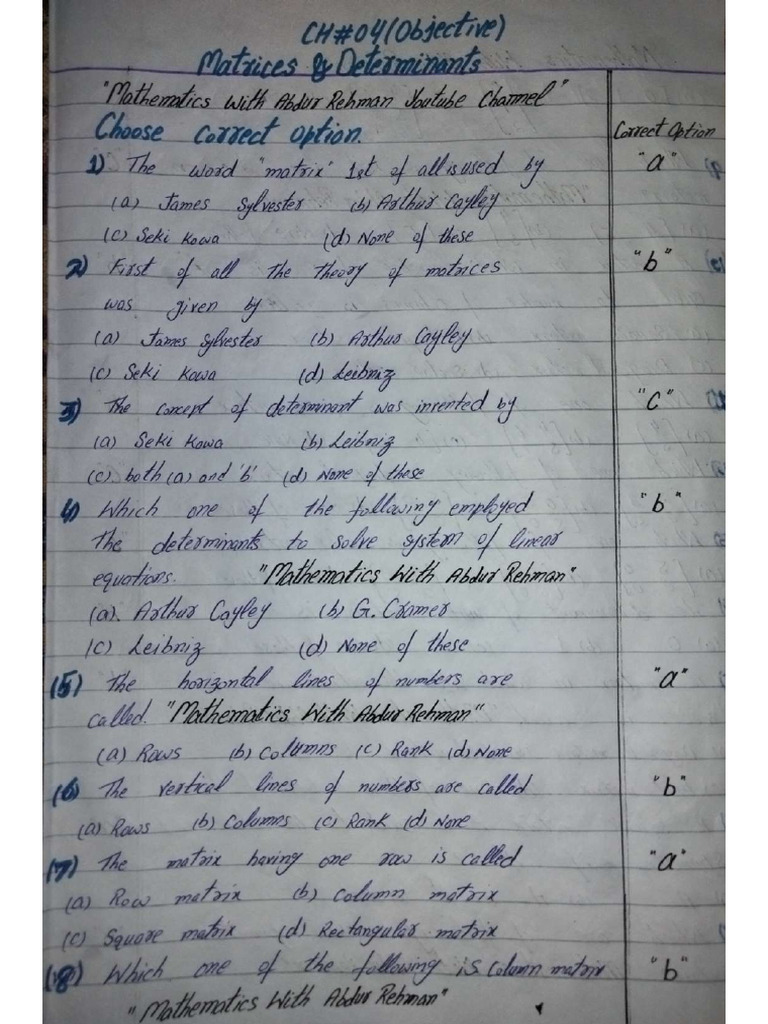 CH#04(Objective)
Matrices & Determinants
"Mathematics With Abdur Rehman Youtube Channel"
Choose correct option. Correct Option
1) The word "matrix" 1st of all is used by "a"
(a) James Sylvester (b) Arthur Cayley
(c) Seki Kowa (d) None of these
2) First of all the theory of matrices "b"
was given by
(a) James Sylvester (b) Arthur Cayley
(c) Seki Kowa (d) Leibniz
3) The concept of determinant was invented by "c"
(a) Seki Kowa (b) Leibniz
(c) both (a) and 'b' (d) None of these
4) Which one of the following employed "b"
the determinants to solve system of linear
equations. "Mathematics With Abdur Rehman"
(a). Arthur Cayley (b) G. Cramer
(c) Leibniz (d) None of these
(5) The horizontal lines of numbers are "a"
called. "Mathematics With Abdur Rehman"
(a) Rows (b) Columns (c) Rank (d) None
(6) The vertical lines of numbers are called "b"
(a) Rows (b) Columns (c) Rank (d) None
(7) The matrix having one row is called "a"
(a) Row matrix (b) Column matrix
(c) Square matrix (d) Rectangular matrix
(8) Which one of the following is column matrix "b"
"Mathematics With Abdur Rehman"